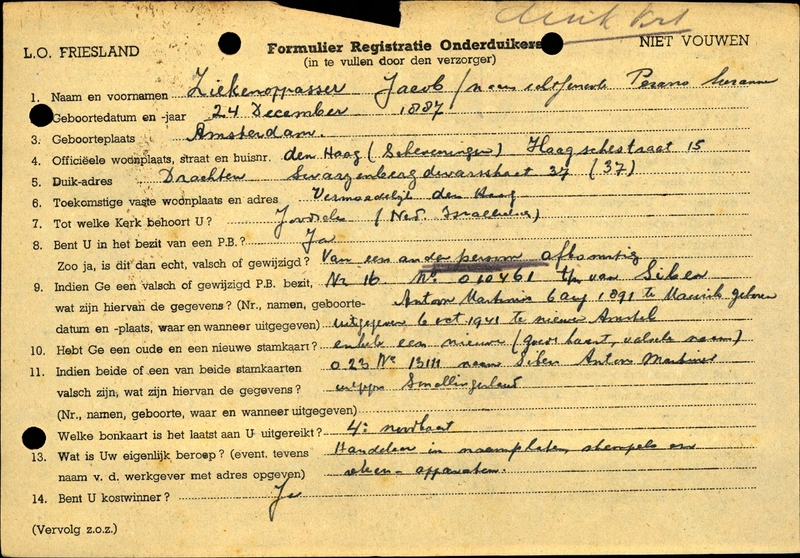 L.O. FRIESLAND
Formulier Registratie Onderduikers
NIET VOUWEN
(in te vullen door den verzorger)
1. Naam en voornamen Ziekenoppasser Jacob / naam echtgenoote Pesaro
Geboortedatum en -jaar 24 December 1887
3. Geboorteplaats Amsterdam.
4. Officiëele woonplaats, straat en huisnr. den Haag (Scheveningen) Haagschestraat 15
5. Duik-adres Drachten 37 (37)
6. Toekomstige vaste woonplaats en adres Vermoedelijk den Haag
7. Tot welke Kerk behoort U? Joodsche (Ned.
8. Bent U in het bezit van een P.B.? Ja
Zoo ja, is dit dan echt, valsch of gewijzigd? Van een ander persoon afkomstig
9. Indien Ge een valsch of gewijzigd P.B. bezit, Nr 16 No 010461 van Siben
wat zijn hiervan de gegevens? (Nr., namen, geboorte- Anton Martinus 6 aug 1891 te Maurik geboren
datum en -plaats, waar en wanneer uitgegeven) uitgegeven 6 oct 1941 te nieuwer Amstel
10. Hebt Ge een oude en een nieuwe stamkaart? enkele een nieuwe (goede kaart, valsche naam)
11. Indien beide of een van beide stamkaarten 023 No 13111 naam Siben Anton Martinus
valsch zijn, wat zijn hiervan de gegevens? Smallingerland
(Nr., namen, geboorte, waar en wanneer uitgegeven)
Welke bonkaart is het laatst aan U uitgereikt? 4e noodkaart
13. Wat is Uw eigenlijk beroep? (event. tevens Handelaar in naamplaten, stempels en
naam v. d. werkgever met adres opgeven) reken-apparaten.
14. Bent U kostwinner? Ja
(Vervolg z.o.z.)